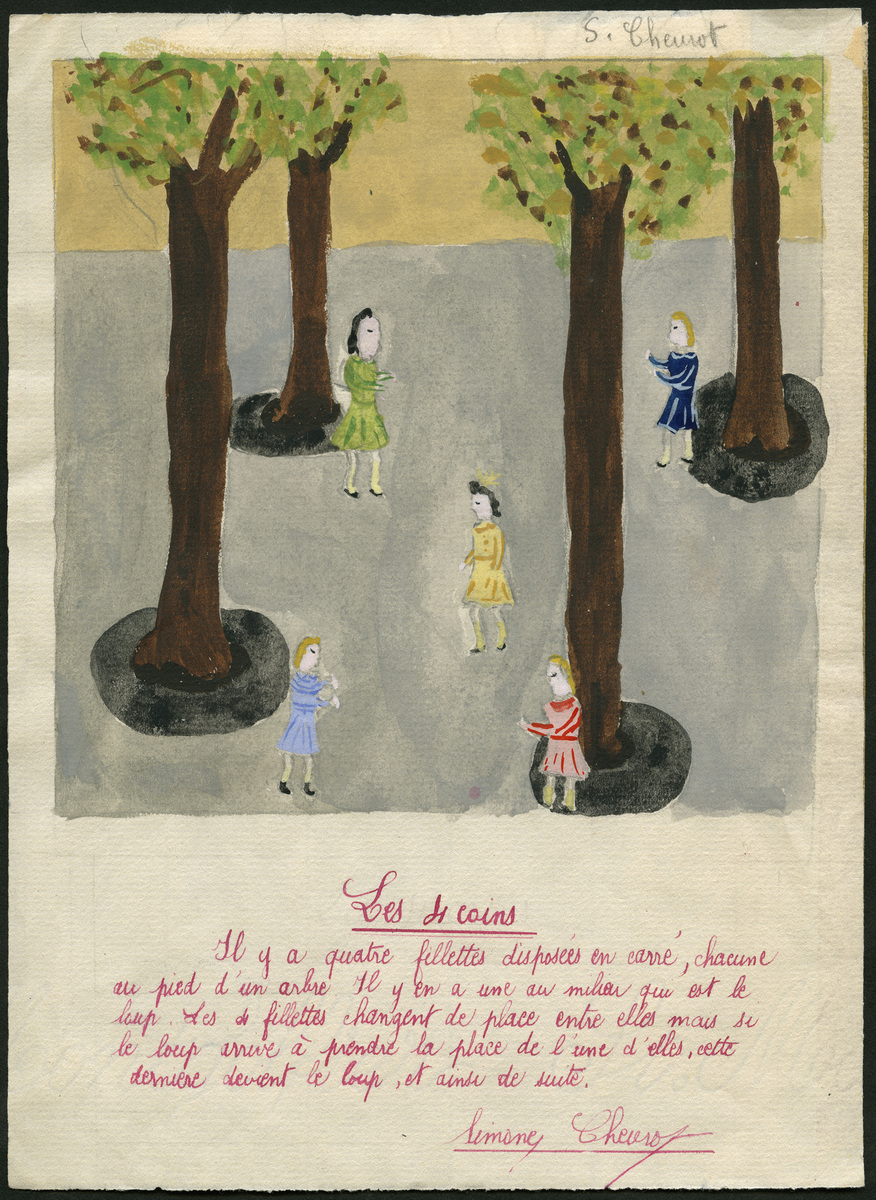 S. Cheurot
Les 4 coins
Il y a quatre fillettes disposées en carré, chacune
au pied d'un arbre Il y en a une au milieu qui est le
loup. Les 4 fillettes changent de place entre elles mais si
le loup arrive à prendre la place de l'une d'elles, cette
dernière devient le loup, et ainsi de suite.
Simone Cheurot